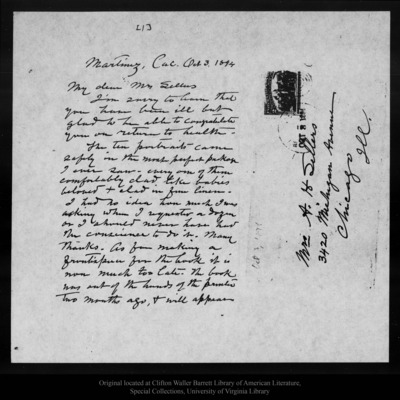 213
Martinez, Cal. Oct 3. 1894
My dear Mrs Sellers
I'm sorry to learn that
you have been ill but
glad to be able to congratulate
you on return to health.
The ten portraits came
safely in the most perfect package
I ever saw - every one of them
comfortably clad like babies
beloved & clad in fine linen.
I had no idea how much I was
asking when I requested a dozen
or I should never have had
the conscience to do it. Many
thanks. As for making a
frontispiece for the book it is
now much too late. The book
was out of the hands of the printer
two months ago, & will appear
Mrs A. H. Sellers
3420 Michigan Avenue
Chicago
Ill.
Original located at Clifton Waller Barrett Library of American Literature,
Special Collections, University of Virginia Library